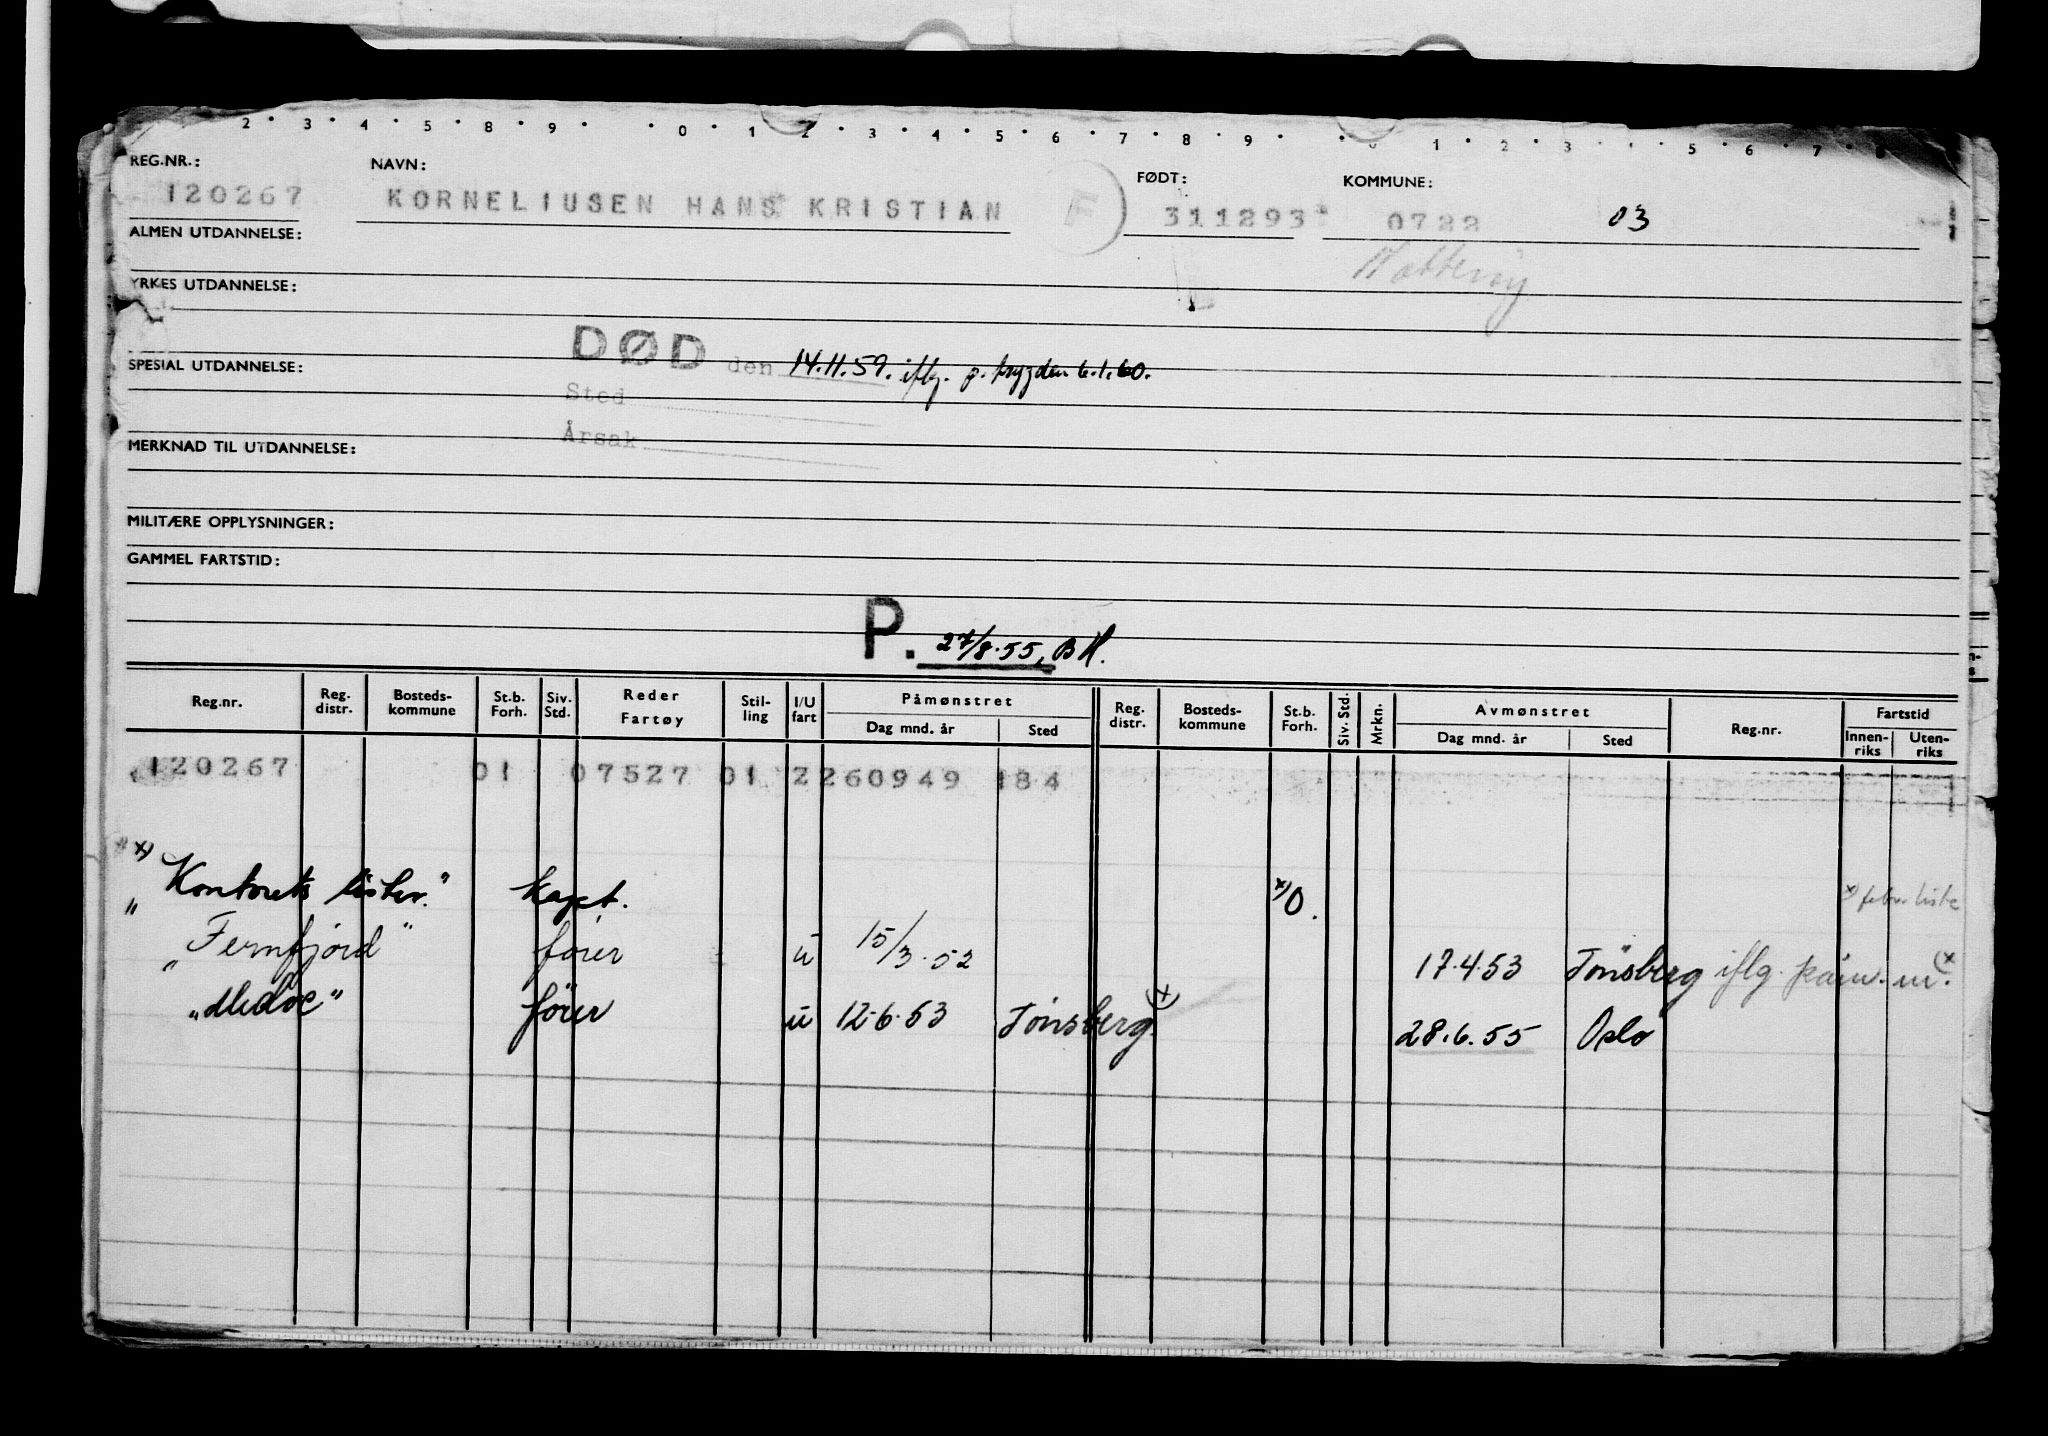 2 · 3 · 4 · 5 · 8 · 9 · · 0 · 1 · 2 · 3 · 4 · 5 · 6 · 7 · 8 · 9 · · 1 · 2 · 3 · · 5 · 6 · 7 · 8
REG.NR.: NAVN: FØDT: KOMMUNE:
120267 KORNELIUSEN HANS KRISTIAN F 311293 0722 03
ALMEN UTDANNELSE:
Nøtterøy
YRKES UTDANNELSE:
DØD den 14.11.59. iflg. p. trygden 6.1.60.
SPESIAL UTDANNELSE:
Sted
Årsak
MERKNAD TIL UTDANNELSE:
MILITÆRE OPPLYSNINGER:
GAMMEL FARTSTID:
P. 27/8.55, BH.
Reg.nr. Reg. distr. Bosteds- kommune St.b. Forh. Siv. Std. Reder Fartøy Stil- ling I/U fart Påmønstret Dag mnd. år Sted Reg. distr. Bosteds- kommune St.b. Forh. Siv. Std. Mrkn. Avmønstret Dag mnd. år Sted Reg.nr. Fartstid Innen- riks Uten- riks
120267 01 07527 01 2 260949 184
x)
"Kontorets lister." kapt. x) O. x) febr. liste
"Fernfjord" fører u 15/3.52 17.4.53 Tönsberg iflg. påm. m. x)
" " fører u 12.6.53 Tönsberg x) 28.6.55 Oslo